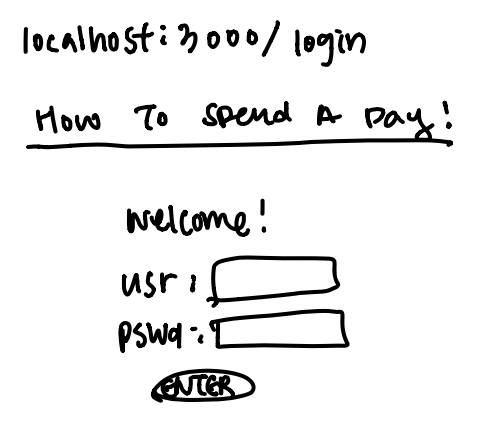 localhost:3000/login
How To Spend A Day!
Welcome!
usr:
pswd:
ENTER